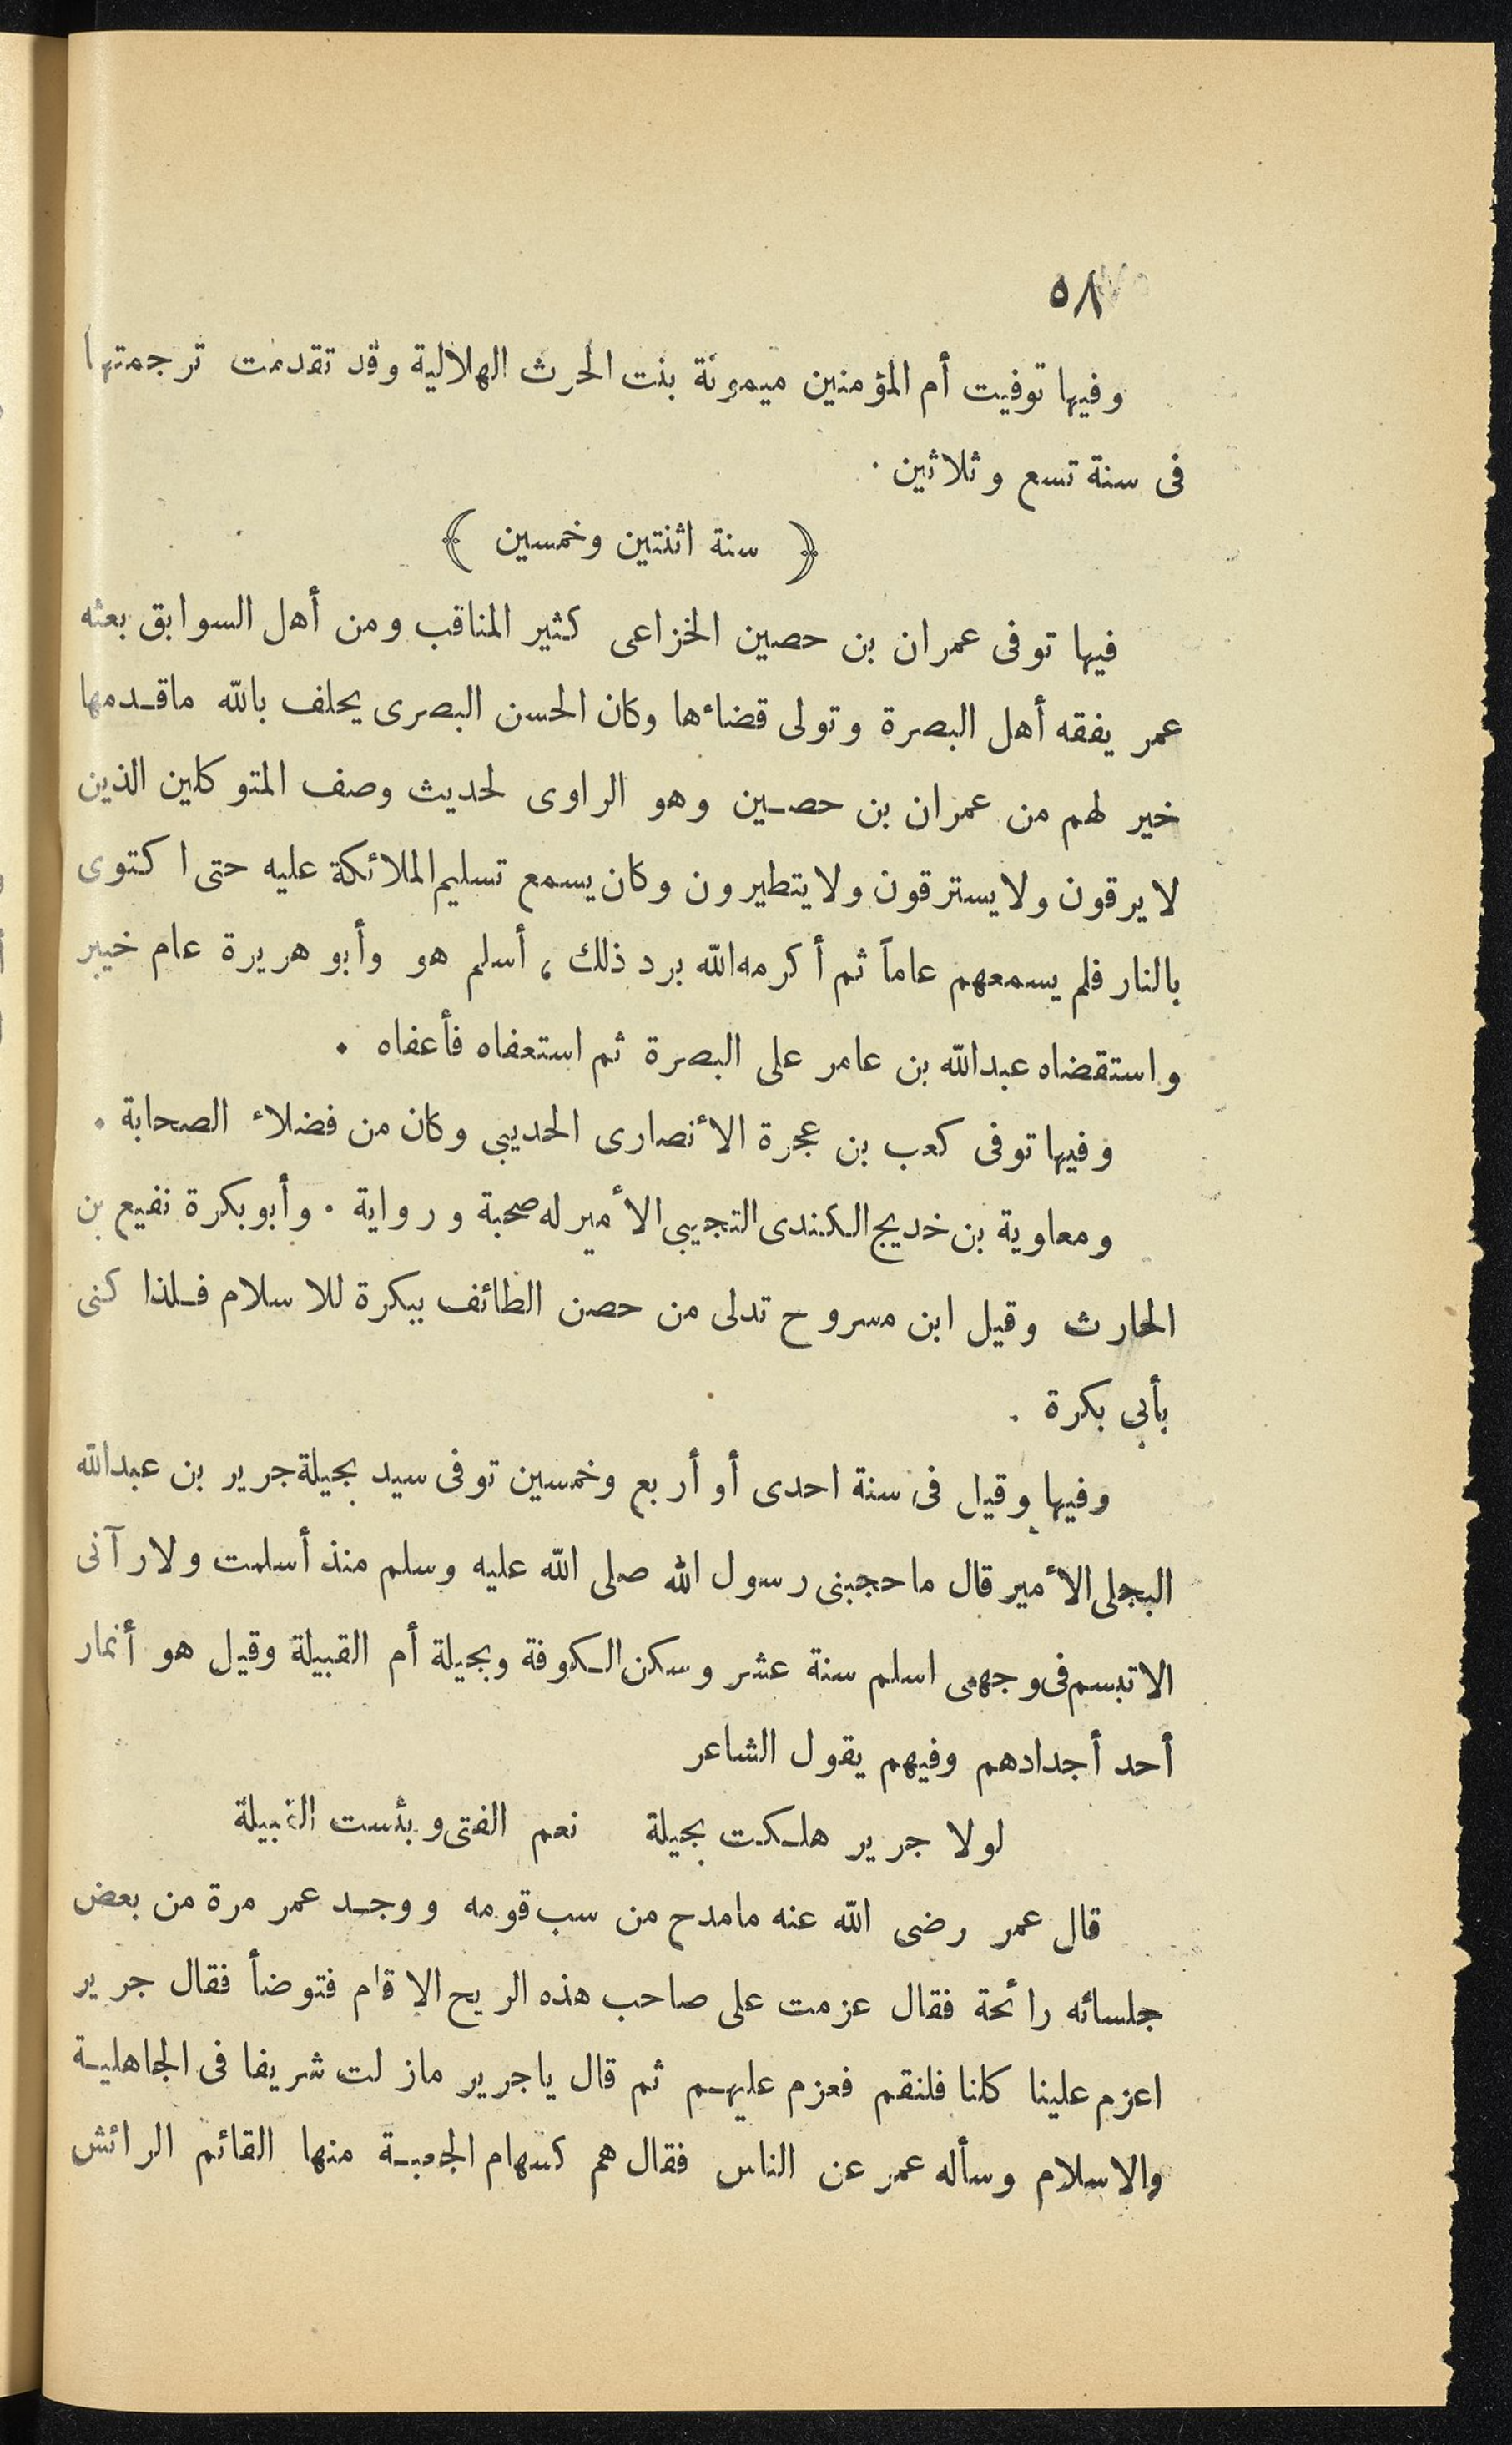 ٥٨
وفيها توفيت أم المؤمنين ميمونة بنت الحرث الهلالية وقد تقدمت ترجمتها
فى سنة تسع وثلاثين .
﴿ سنة اثنتين وخمسين ﴾
فيها توفى عمران بن حصين الخزاعى كثير المناقب ومن أهل السوابق بعثه
عمر يفقه أهل البصرة وتولى قضاءها وكان الحسن البصرى يحلف بالله ماقدمها
خير لهم من عمران بن حصين وهو الراوى لحديث وصف المتوكلين الذين
لا يرقون ولا يسترقون ولا يتطيرون وكان يسمع تسليم الملائكة عليه حتى اكتوى
بالنار فلم يسمعهم عاماً ثم أكرمه الله برد ذلك ، أسلم هو وأبو هريرة عام خيبر
واستقضاه عبدالله بن عامر على البصرة ثم استعفاه فأعفاه .
وفيها توفى كعب بن عجرة الأنصارى الحديبى وكان من فضلاء الصحابة .
ومعاوية بن خديج الكندى التجيبى الأمير له صحبة ورواية . وأبو بكرة نفيع بن
الحارث وقيل ابن مسروح تدلى من حصن الطائف ببكرة للاسلام فلذا كنى
بأبى بكرة .
وفيها وقيل فى سنة احدى أو أربع وخمسين توفى سيد بجيلة جرير بن عبدالله
البجلى الأمير قال ما حجبنى رسول الله صلى الله عليه وسلم منذ أسلمت ولا رآنى
الا تبسم فى وجهى اسلم سنة عشر وسكن الكوفة وبجيلة أم القبيلة وقيل هو أنمار
أحد أجدادهم وفيهم يقول الشاعر
لولا جرير هلكت بجيلة نعم الفتى وبئست القبيلة
قال عمر رضى الله عنه مامدح من سب قومه ووجد عمر مرة من بعض
جلسائه رائحة فقال عزمت على صاحب هذه الريح الا قام فتوضأ فقال جرير
اعزم علينا كلنا فلنقم فعزم عليهم ثم قال ياجرير مازلت شريفا فى الجاهلية
والاسلام وسأله عمر عن الناس فقال هم كسهام الجعبة منها القائم الرائش